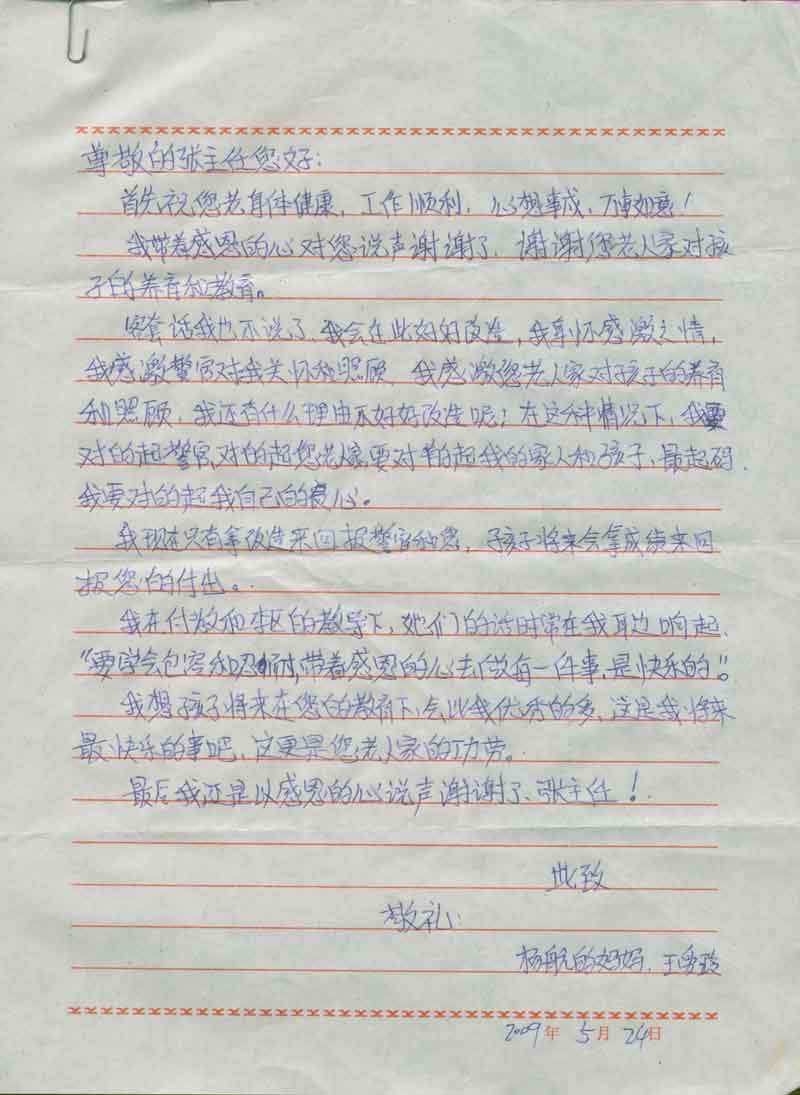 尊敬的张主任您好：
首先祝您老身体健康，工作顺利，心想事成，万事如意！
我带着感恩的心对您说声谢谢了，谢谢您老人家对孩
子的养育和教育。
客套话我也不说了，我会在此好好改造，我享怀感激之情，
我感激警官对我关怀和照顾，我感激您老人家对孩子的养育
和照顾，我还有什么理由不好好改造呢！在这种情况下，我要
对的起警官，对的起您老人家，要对的起我的家人和孩子，最起码，
我要对的起我自己的良心。
我现在只有拿改造来回报警官和您，孩子将来会拿成绩来回
报您的付出。
我在付教和本区的教导下，她们的话时常在我耳边响起、
“要学会包容和忍耐，带着感恩的心去做每一件事，是快乐的”。
我想孩子将来在您的教育下，会比我优秀的多，这是我将来
最快乐的事吧，这更是您老人家的功劳。
最后我还是以感恩的心说声谢谢了、张主任！
此致
敬礼
杨航的妈妈、王
2009年5月24日